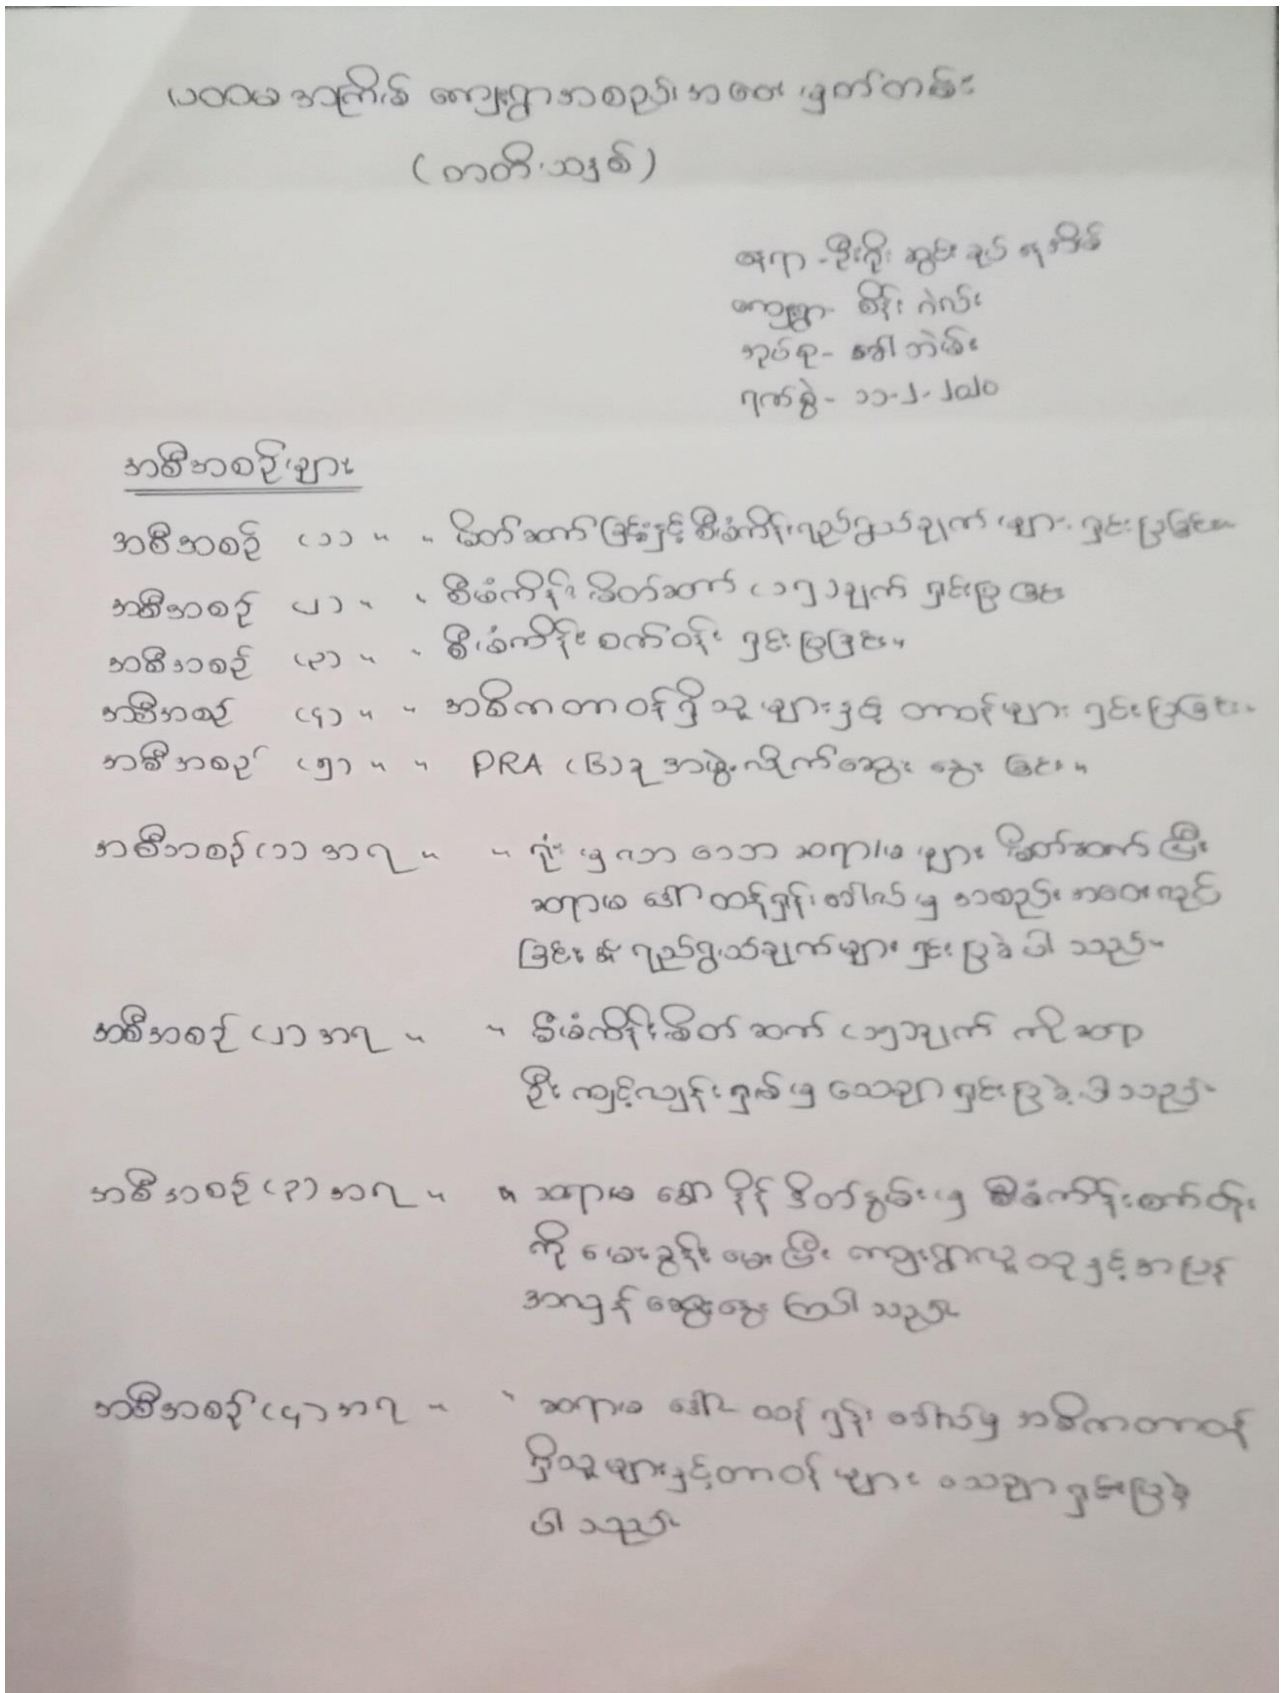 ပထမအကြိမ် ကျေးရွာအစည်းအဝေး မှတ်တမ်း
(တတိယနှစ်)
နေရာ - ဦးဂိုး ဆွမ်းခုပ် နေအိမ်
ကျေးရွာ - စိန်း
အုပ်စု - ဒေါ
ရက်စွဲ - ၁၁-၂-၂၀၂၀
အစီအစဉ်များ
အစီအစဉ် (၁) " " မိတ်ဆက်ခြင်းနှင့် စီမံကိန်းရည်ရွယ်ချက်များ ရှင်းပြခြင်း။
အစီအစဉ် (၂) " " စီမံကိန်း မိတ်ဆက် (၁၅)ချက် ရှင်းပြခြင်း
အစီအစဉ် (၃) " " စီမံကိန်း စက်ဝန်း ရှင်းပြခြင်း။
အစီအစဉ် (၄) " " အဓိကတာဝန်ရှိသူများနှင့် တာဝန်များ ရှင်းပြခြင်း။
အစီအစဉ် (၅) " " PRA (၆)ခု အဖွဲ့လိုက်ဆွေးနွေးခြင်း။
အစီအစဉ် (၁) အရ " " ရုံးမှလာသော ဆရာ/မများ မိတ်ဆက်ပြီး
ဆရာမ ဒေါ် အစည်းအဝေးကျင်းပ
ခြင်း၏ ရည်ရွယ်ချက်များ ရှင်းပြခဲ့ပါသည်။
အစီအစဉ် (၂) အရ " " စီမံကိန်းမိတ်ဆက် (၁၅)ချက် ကိုဆရာ
ဦး မှ သေချာရှင်းပြခဲ့ပါသည်။
အစီအစဉ် (၃) အရ " " ဆရာမ ဒေါ် မှ စီမံကိန်းစက်ဝန်း
ကို မေးခွန်းမေးပြီး ကျေးရွာလူထုနှင့်အပြန်
အလှန် ဆွေးနွေးကြပါသည်။
အစီအစဉ် (၄) အရ " " ဆရာမ ဒေါ် အဓိကတာဝန်
ရှိသူများနှင့်တာဝန်များ သေချာရှင်းပြခဲ့
ပါသည်။